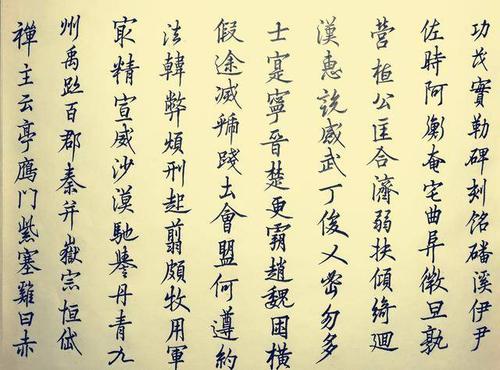 功茂實勒碑刻銘磻溪伊尹
佐時阿衡奄宅曲阜微旦孰
營桓公匡合濟弱扶傾綺迴
漢惠說感武丁俊乂密勿多
士寔寧晉楚更霸趙魏困橫
假途滅虢踐土會盟何遵約
法韓弊煩刑起翦頗牧用軍
冣精宣威沙漠馳譽丹青九
州禹跡百郡秦并嶽宗恒岱
禪主云亭鴈門紫塞雞田赤